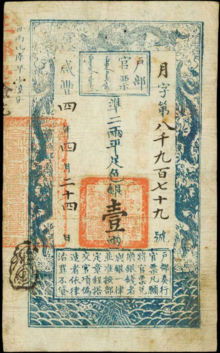 戶部
官票
月字第八千九百七十九號
準二兩平足色銀壹兩
咸豐四年四月二十四日
戶部奏行
官票凡願
將官票兌
換銀錢者
與銀一律
並准按部
定章程搭
交官項偽
造者依律
治罪不貸